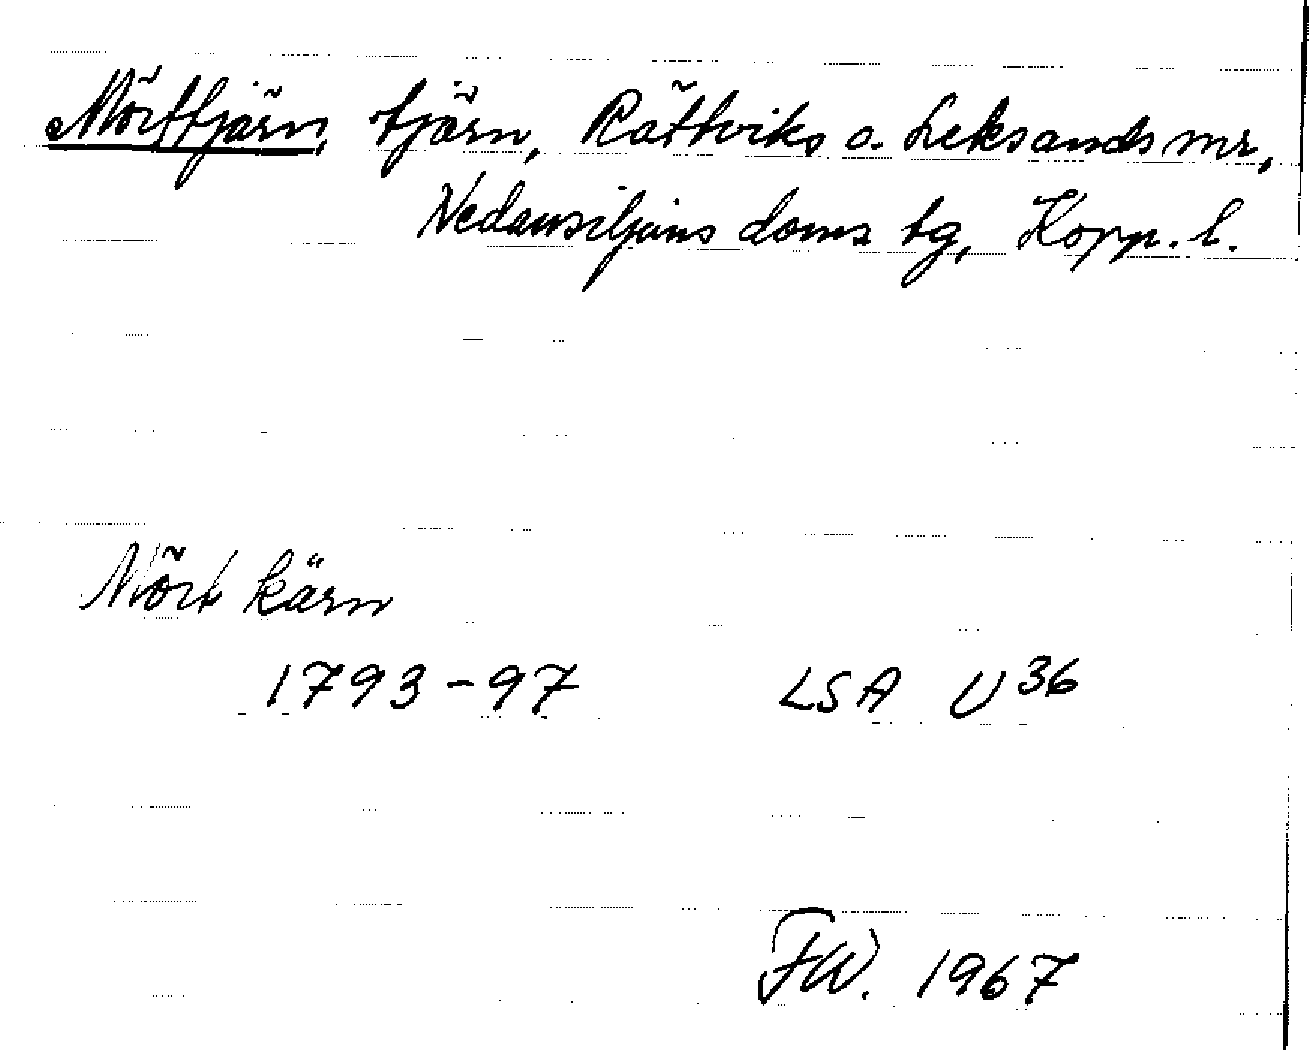 Mörttjärn, tjärn, Rättviks o. Leksands snr,
Nedansiljans doms tg, Kopp. l.
Mört kärn
1793-97 LSA U 36
FW. 1967